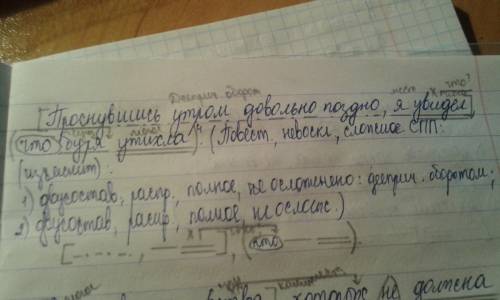 Дееприч. оборот мест. что?
[Проснувшись утром довольно поздно, я увидел]
(что буря утихла). (Повест., невоскл., сложное СПП:
(изъяснит):
1) двусостав, распр, полное, ослож
нено: дееприч. оборотом;
2) двусостав, распр, полное, не ослож.)
[_._._., — =], (что — =).
которое не должна